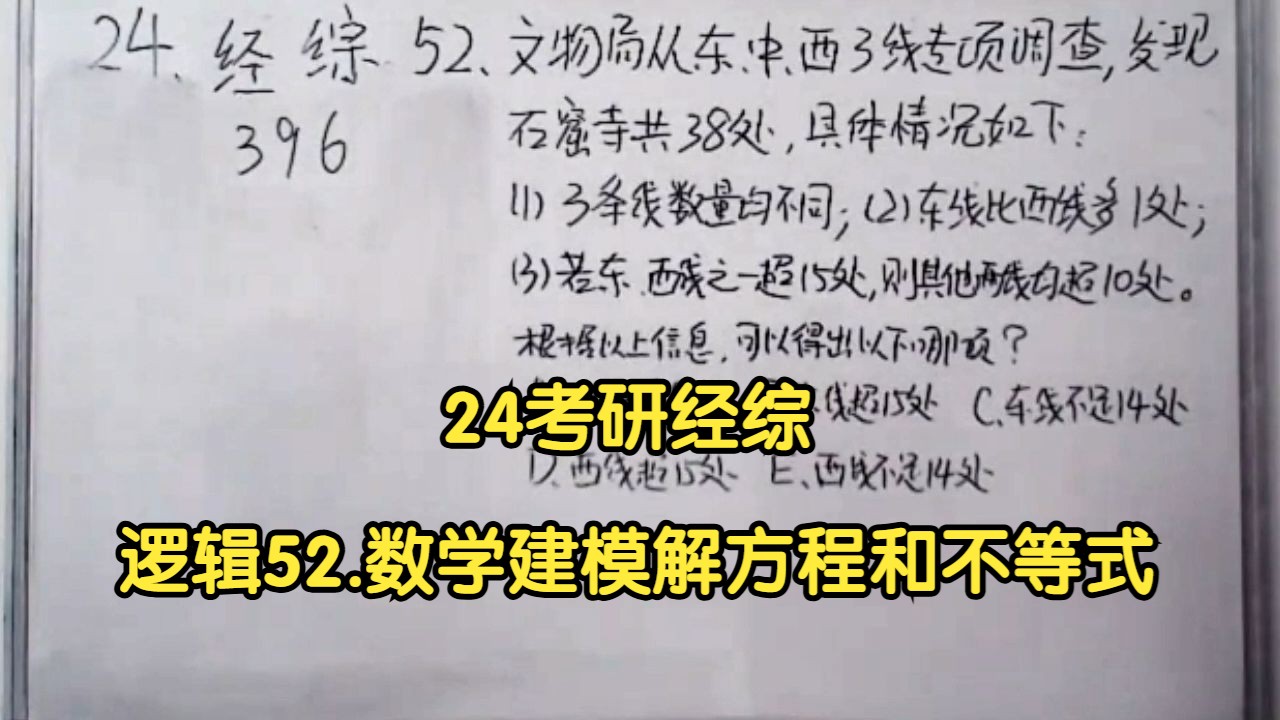 24、经综 52、文物局从东、中、西3线专项调查,发现
396
石窟寺共38处,具体情况如下:
(1) 3条线数量均不同;(2)东线比西线多1处;
(3)若东、西线之一超15处,则其他两线均超10处。
根据以上信息,可以得出以下哪项?
线超15处 C.东线不足14处
24考研经综
D.西线超15处 E、西线不足14处
逻辑52.数学建模解方程和不等式